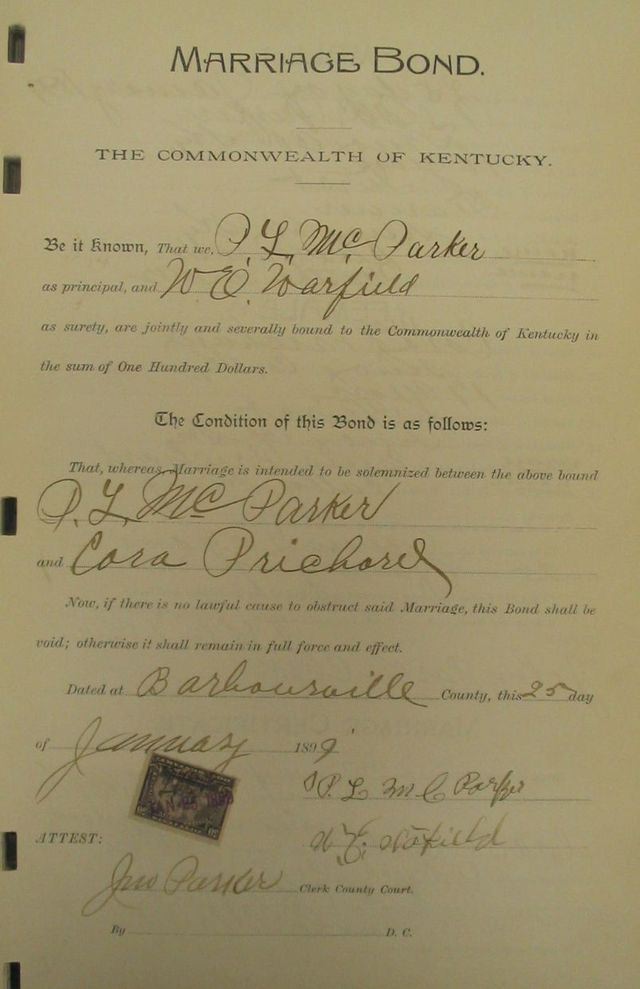 MARRIAGE BOND.
THE COMMONWEALTH OF KENTUCKY.
Be it Known, That we, P. L. Mc Parker
as principal, and W E. Warfield
as surety, are jointly and severally bound to the Commonwealth of Kentucky in
the sum of One Hundred Dollars.
The Condition of this Bond is as follows:
That, whereas, Marriage is intended to be solemnized between the above bound
P. L. Mc Parker
and Cora Prichard
Now, if there is no lawful cause to obstruct said Marriage, this Bond shall be
void; otherwise it shall remain in full force and effect.
Dated at Barbourville County, this 25 day
of January 1899
P L M C Parker
ATTEST: W. E. Warfield
Jno Parker Clerk County Court.
By D. C.